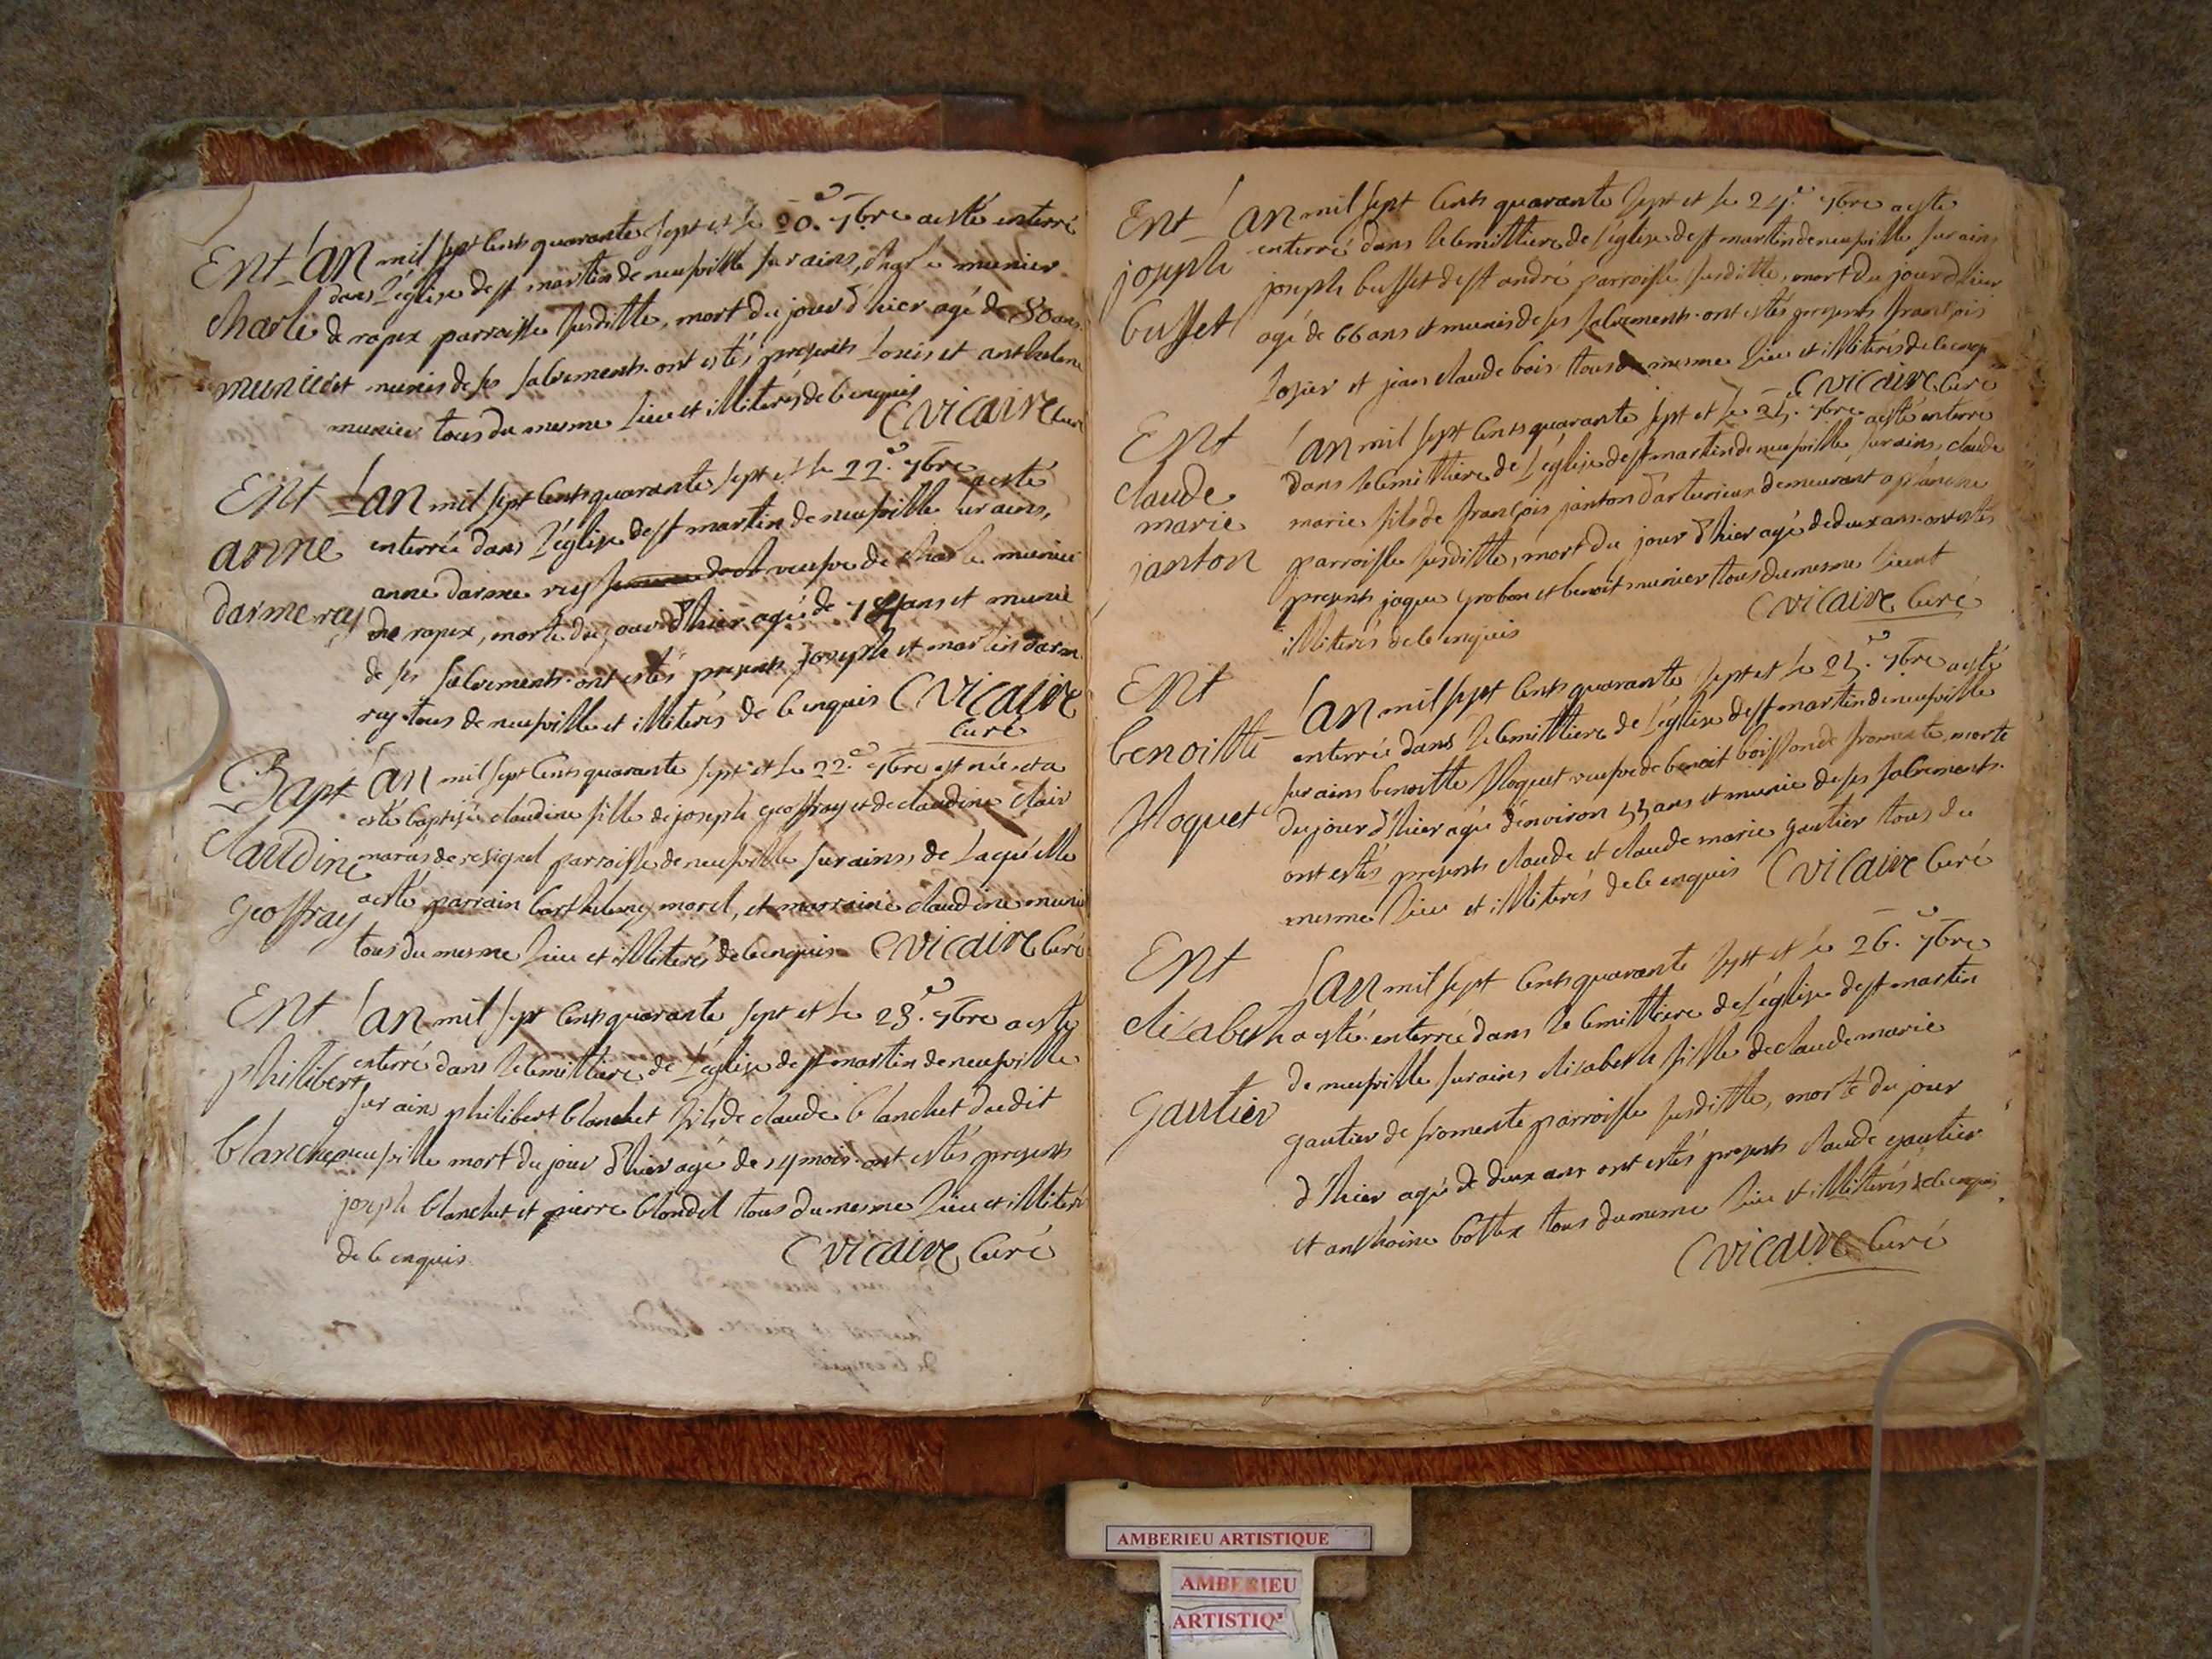 Ent L'an mil sept cents quarante sept et le 20.e 7bre a esté enterré
dans l'église de st martin de neufville sur ains, charle munier
charle de rapex parroisse susditte, mort du jour d'hier agé de 80 ans
munier et munis de ses sacrements. ont estés presents Louis et anthelme
munier tous du mesme lieu et illiterés de ce enquis C vicaire curé
Ent L'an mil sept cents quarante sept et le 22.e 7bre a esté
anne enterrée dans l'église de st martin de neufville sur ains,
anne darmeray veufve de charle munier
darmeray de rapex, morte du jour d'hier agée de ans et munie
de ses sacrements. ont estés presents Joseph et martin darme
ray tous de neufville et illiterés de ce enquis C vicaire
curé
Bapt L'an mil sept cents quarante sept et le 22.e 7bre est née et a
esté baptisée claudine fille de joseph geoffray et de claudine clair
claudine mariés de resignel parroisse de neufville sur ains, de laquelle
a esté parrain barthelemy morel, et marraine claudine munier
geoffray
tous du mesme lieu et illiterés de ce enquis C vicaire curé
Ent L'an mil sept cents quarante sept et le 23.e 7bre a esté
philibert enterré dans le cemittiere de l'église de st martin de neufville
sur ains philibert blanchet fils de claude blanchet dudit
blanchet neufville mort du jour d'hier agé de 14 mois. ont estés presents
joseph blanchet et pierre blondel tous du mesme lieu et illiterés
de ce enquis C vicaire curé
Ent L'an mil sept cents quarante sept et le 24.e 7bre a esté
joseph enterré dans le cemittiere de l'église de st martin de neufville sur ains
joseph busset de st andré parroisse susditte, mort du jour d'hier
busset agé de 66 ans et munis de ses sacrements. ont estés presents françois
Losier et jean claude bois tous du mesme lieu et illiterés de ce enqu
C vicaire curé
Ent L'an mil sept cents quarante sept et le 25.e 7bre a esté enterré
claude dans le cemittiere de l'église de st martin de neufville sur ains, claude
marie marie fils de françois janton d'arturieux demeurant a planche
janton parroisse susditte, mort du jour d'hier agé de deux ans. ont estés
presents jaque grobon et benoit munier tous du mesme lieu et
illiterés de ce enquis C vicaire curé
Ent L'an mil sept cents quarante sept et le 25.e 7bre a esté
benoitte enterrée dans le cemittiere de l'église de st martin de neufville
sur ains benoitte Moquet veufve de benoit boisson de fromente, morte
Moquet du jour d'hier agée d'environ 55 ans et munie de ses sacrements.
ont estés presents claude et claude marie gautier tous du
mesme lieu et illiterés de ce enquis C vicaire curé
Ent L'an mil sept cents quarante sept et le 26.e 7bre
elizabeth a esté enterrée dans le cemittiere de l'église de st martin
de neufville sur ains elizabeth fille de claude marie
gautier gautier de fromente parroisse susditte, morte du jour
d'hier agée de deux ans ont estés presents claude gautier
et anthoine bottex tous du mesme lieu et illiterés de ce enquis
C vicaire curé
AMBERIEU ARTISTIQUE
AMBERIEU
ARTISTIQ